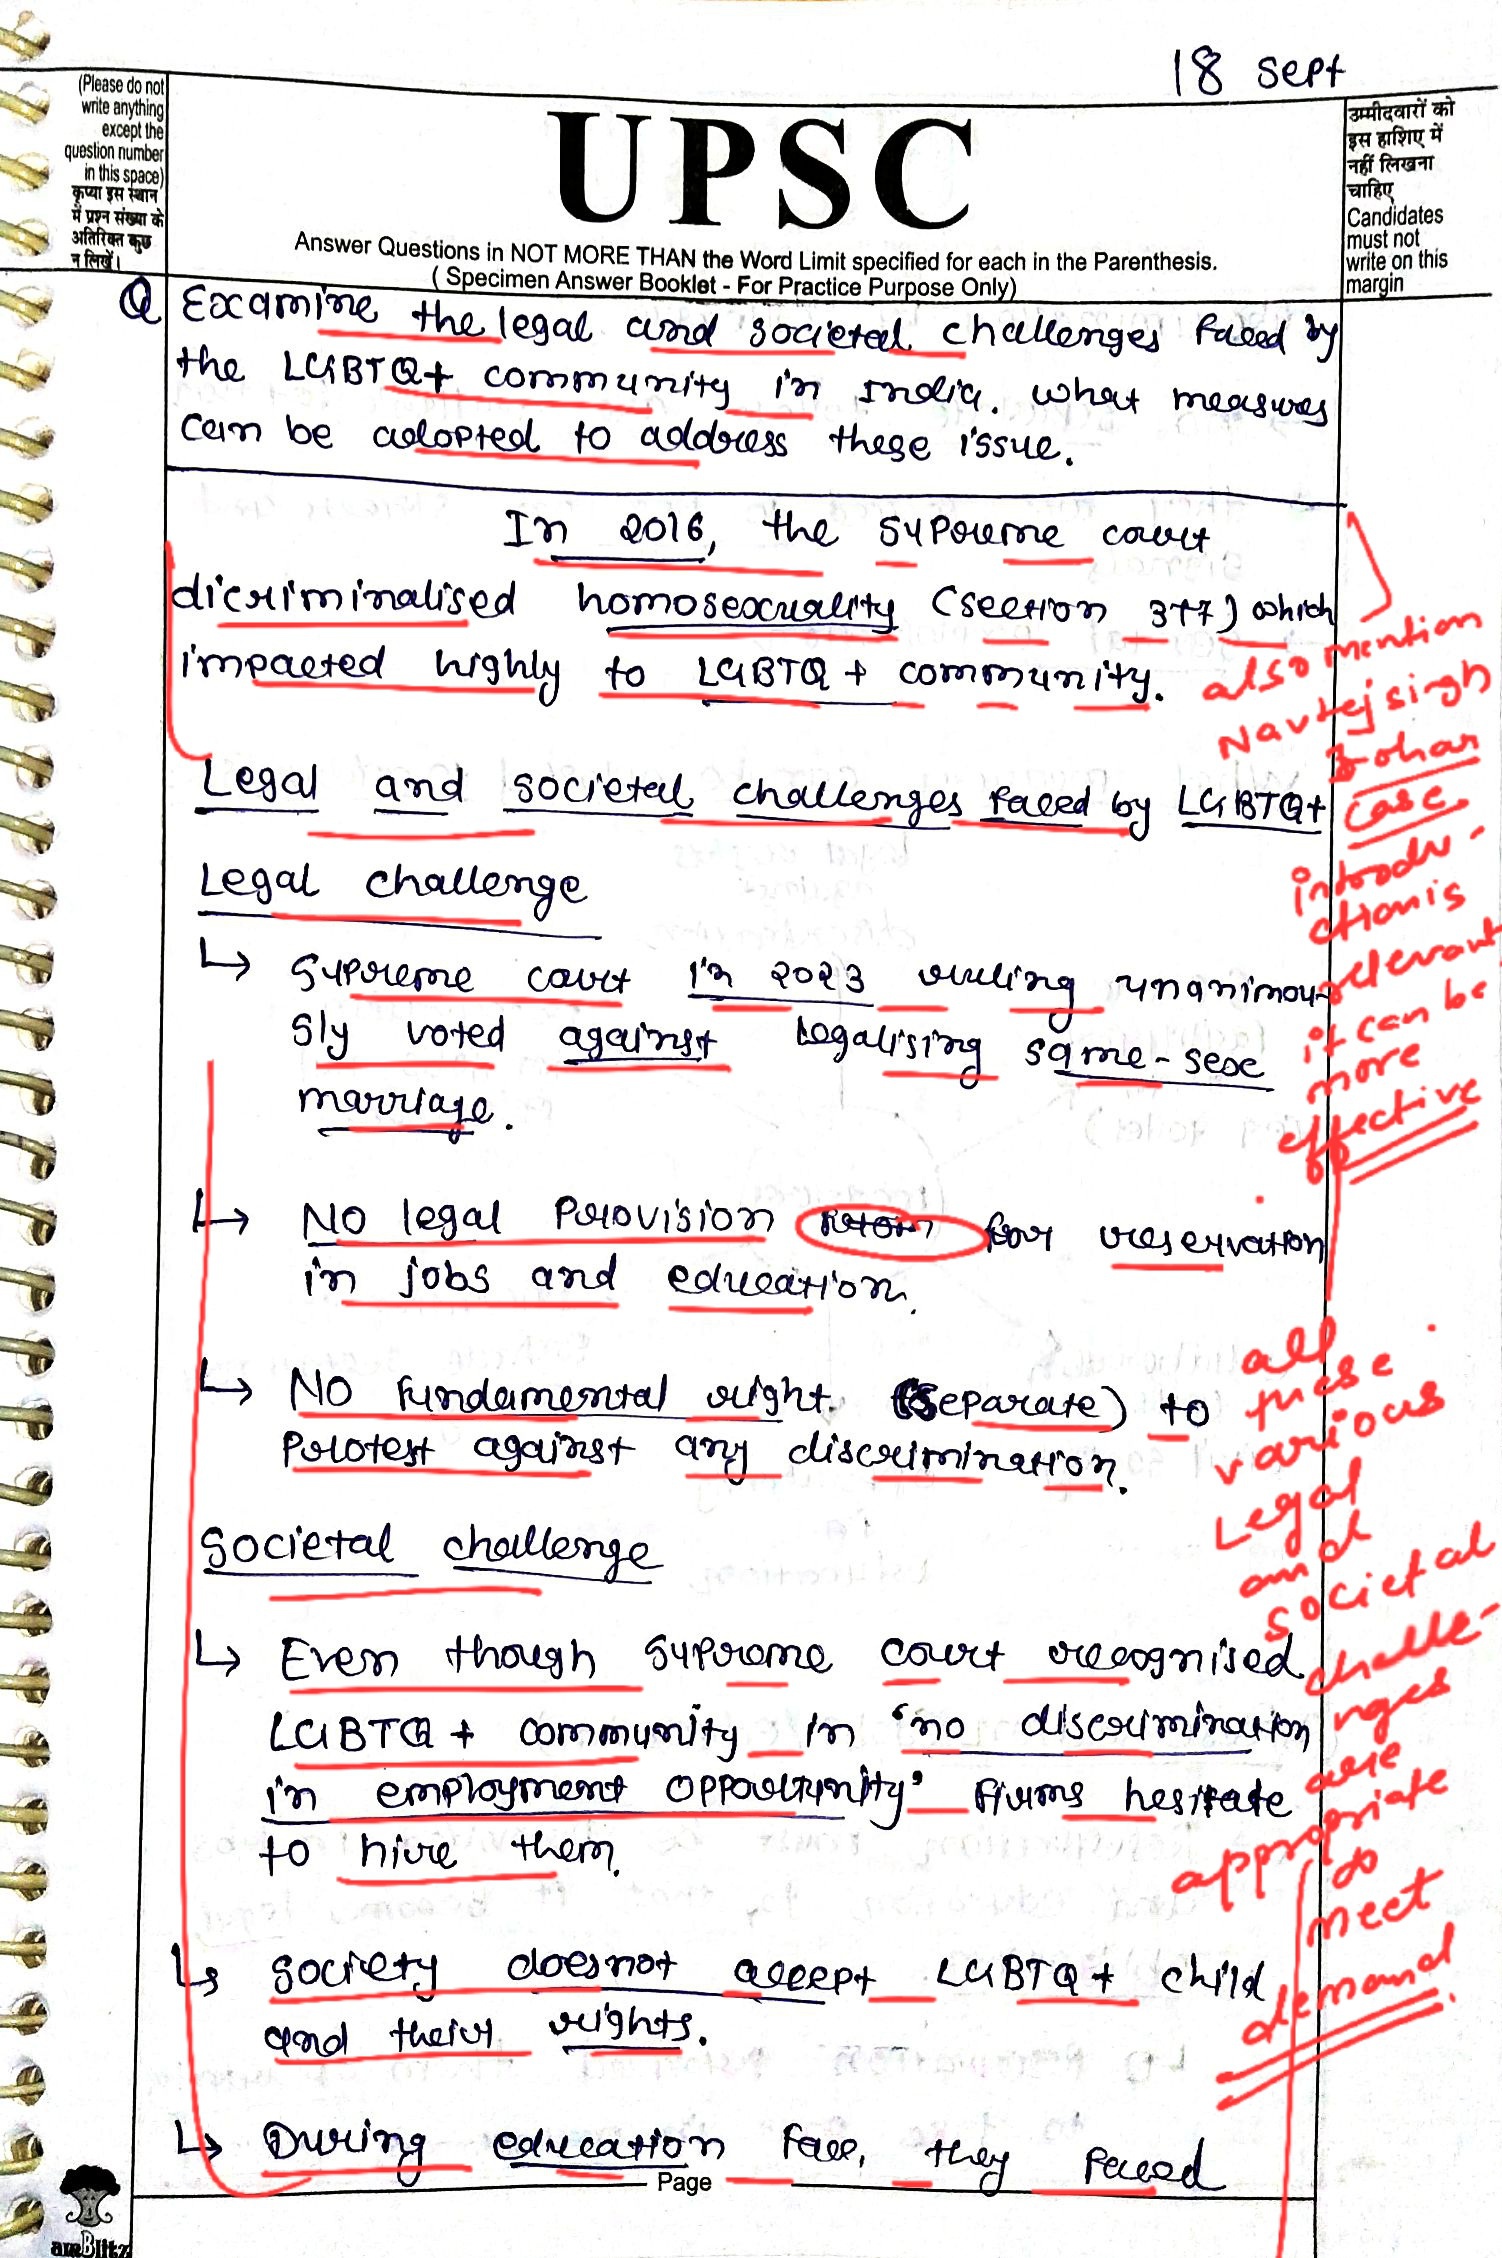 18 Sept
(Please do not
write anything
except the
question number
in this space)
कृप्या इस स्थान
में प्रश्न संख्या के
अतिरिक्त कुछ
न लिखें।
UPSC
Answer Questions in NOT MORE THAN the Word Limit specified for each in the Parenthesis.
( Specimen Answer Booklet - For Practice Purpose Only)
उम्मीदवारों को
इस हाशिए में
नहीं लिखना
चाहिए
Candidates
must not
write on this
margin
Q Examine the legal and societal challenges faced by
the LGBTQ+ community in India. what measures
can be adopted to address these issue.
In 2016, the Supreme court
dicriminalised homosexuality (section 377) which
impacted highly to LGBTQ + community.
also mention
Navtej singh
Johar
case
introdu-
ction is
relevant
it can be
more
effective
Legal and societal challenges faced by LGBTQ+
Legal challenge
↳ Supreme court in 2023 ruling unanimou-
sly voted against legalising same-sex
marriage.
↳ No legal Provision for reservation
in jobs and education.
↳ No fundamental right (separate) to
Protest against any discrimination.
all
these
various
Legal
and
societal
challe-
nges
are
appropriate
to
meet
demand
Societal challenge
↳ Even though Supreme court recognised
LGBTQ + community in 'no discrimination
in employment opportunity' firms hesitate
to hire them.
↳ Society doesnot accept LGBTQ + child
and their rights.
↳ During education face, they faced
Page
amBlitz